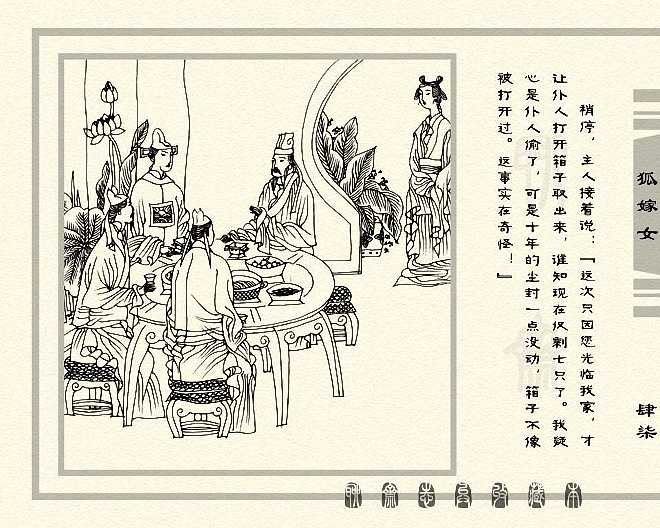 稍停，主人接着说：“这次只因您光临我家，才
让仆人打开箱子取出来，谁知现在仅剩七只了。我疑
心是仆人偷了，可是十年的尘封一点没动，箱子不像
被打开过。这事实在奇怪！”
狐嫁女
肆柒
聊斋志异收藏本